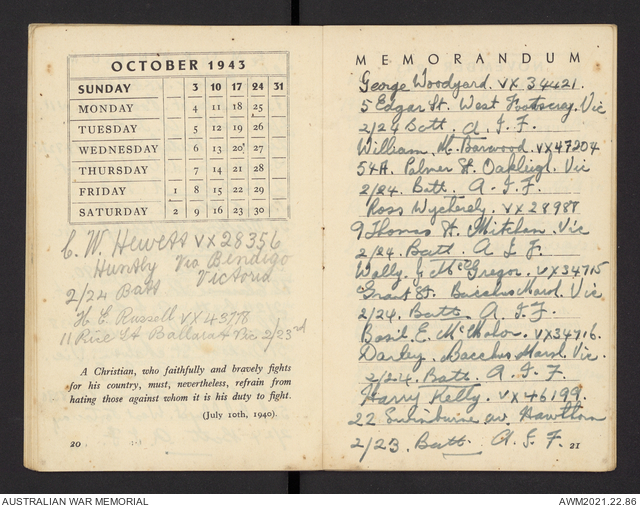 OCTOBER 1943
SUNDAY 3 10 17 24 31
MONDAY 4 11 18 25
TUESDAY 5 12 19 26
WEDNESDAY 6 13 20 27
THURSDAY 7 14 21 28
FRIDAY 1 8 15 22 29
SATURDAY 2 9 16 23 30
C. W. Hewett VX 28356
Huntly Via Bendigo
2/24 Batt Victoria
H E Russell VX 43778
11 Rice St Ballarat Vic 2/23rd
A Christian, who faithfully and bravely fights
for his country, must, nevertheless, refrain from
hating those against whom it is his duty to fight.
(July 10th, 1940).
20
MEMORANDUM
George Woodyard. VX 34421.
5 Edgar St. West Footscray. Vic
2/24 Batt. A. I. F.
William. M. Barwood. VX47204
54A. Palmer St. Oakleigh. Vic
2/24. Batt. A. I. F.
Ross Wycherely. VX28988
9 Thomas St. Mitchan. Vic
2/24. Batt. A. I. F.
Wally. J. McGregor. VX34715
Grant St. Bacchus Marsh. Vic
2/24. Batt. A. I. F.
Basil. E. VX34716.
Darley. Bacchus Marsh. Vic.
2/24. Batt. A. I. F.
Harry Kelly. VX46199.
22 Swinburne av. Hawthorn
2/23. Batt. A. I. F.
21
AUSTRALIAN WAR MEMORIAL
AWM2021.22.86